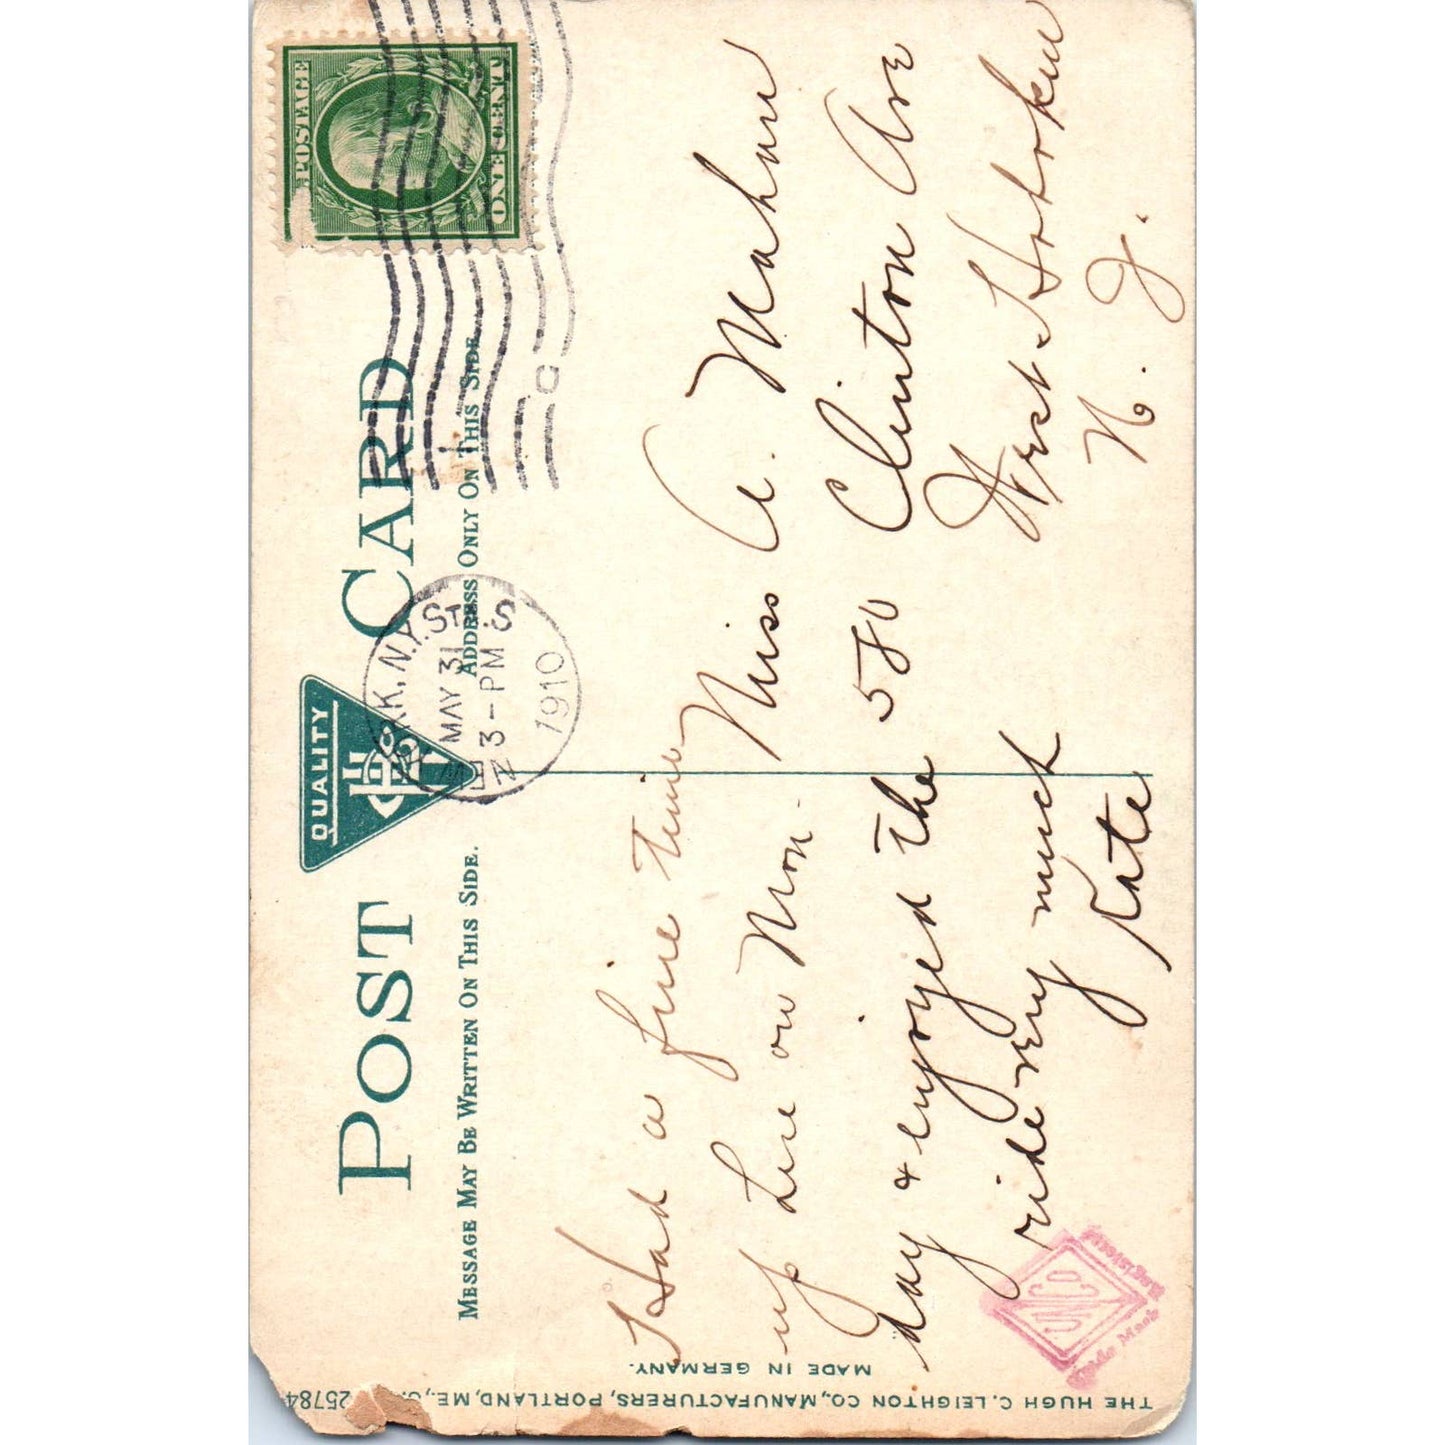 POST CARD
QUALITY
MESSAGE MAY BE WRITTEN ON THIS SIDE.
ADDRESS ONLY ON THIS SIDE.
POSTAGE
ONE CENT
RK, N.Y. STA. S
MAY 31
3-PM
1910
Had a fine time
up here on Mon.
day & enjoyed the
ride very much
Kate
Miss A. Mahan
580 Clinton Ave
West Hoboken
N. J.
THE HUGH C. LEIGHTON CO., MANUFACTURERS, PORTLAND, ME.,
25784
MADE IN GERMANY.
Registered
Trade Mark